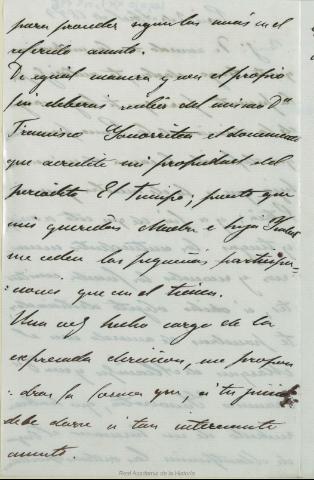 para proceder según las mías en el
referido asunto.
De igual manera y con el propio
fin deberás recibir del mismo Dn
Francisco el documento
que acredite mi propiedad del
periódico El Tiempo; puesto que
mis queridas Madre e hija
me ceden las pequeñas participa-
-ciones que en él tienen.
Una vez hecho cargo de la
expresada me propon-
-drás la forma que, a tu juicio
debe darse a tan interesante
asunto.
Real Academia de la Historia